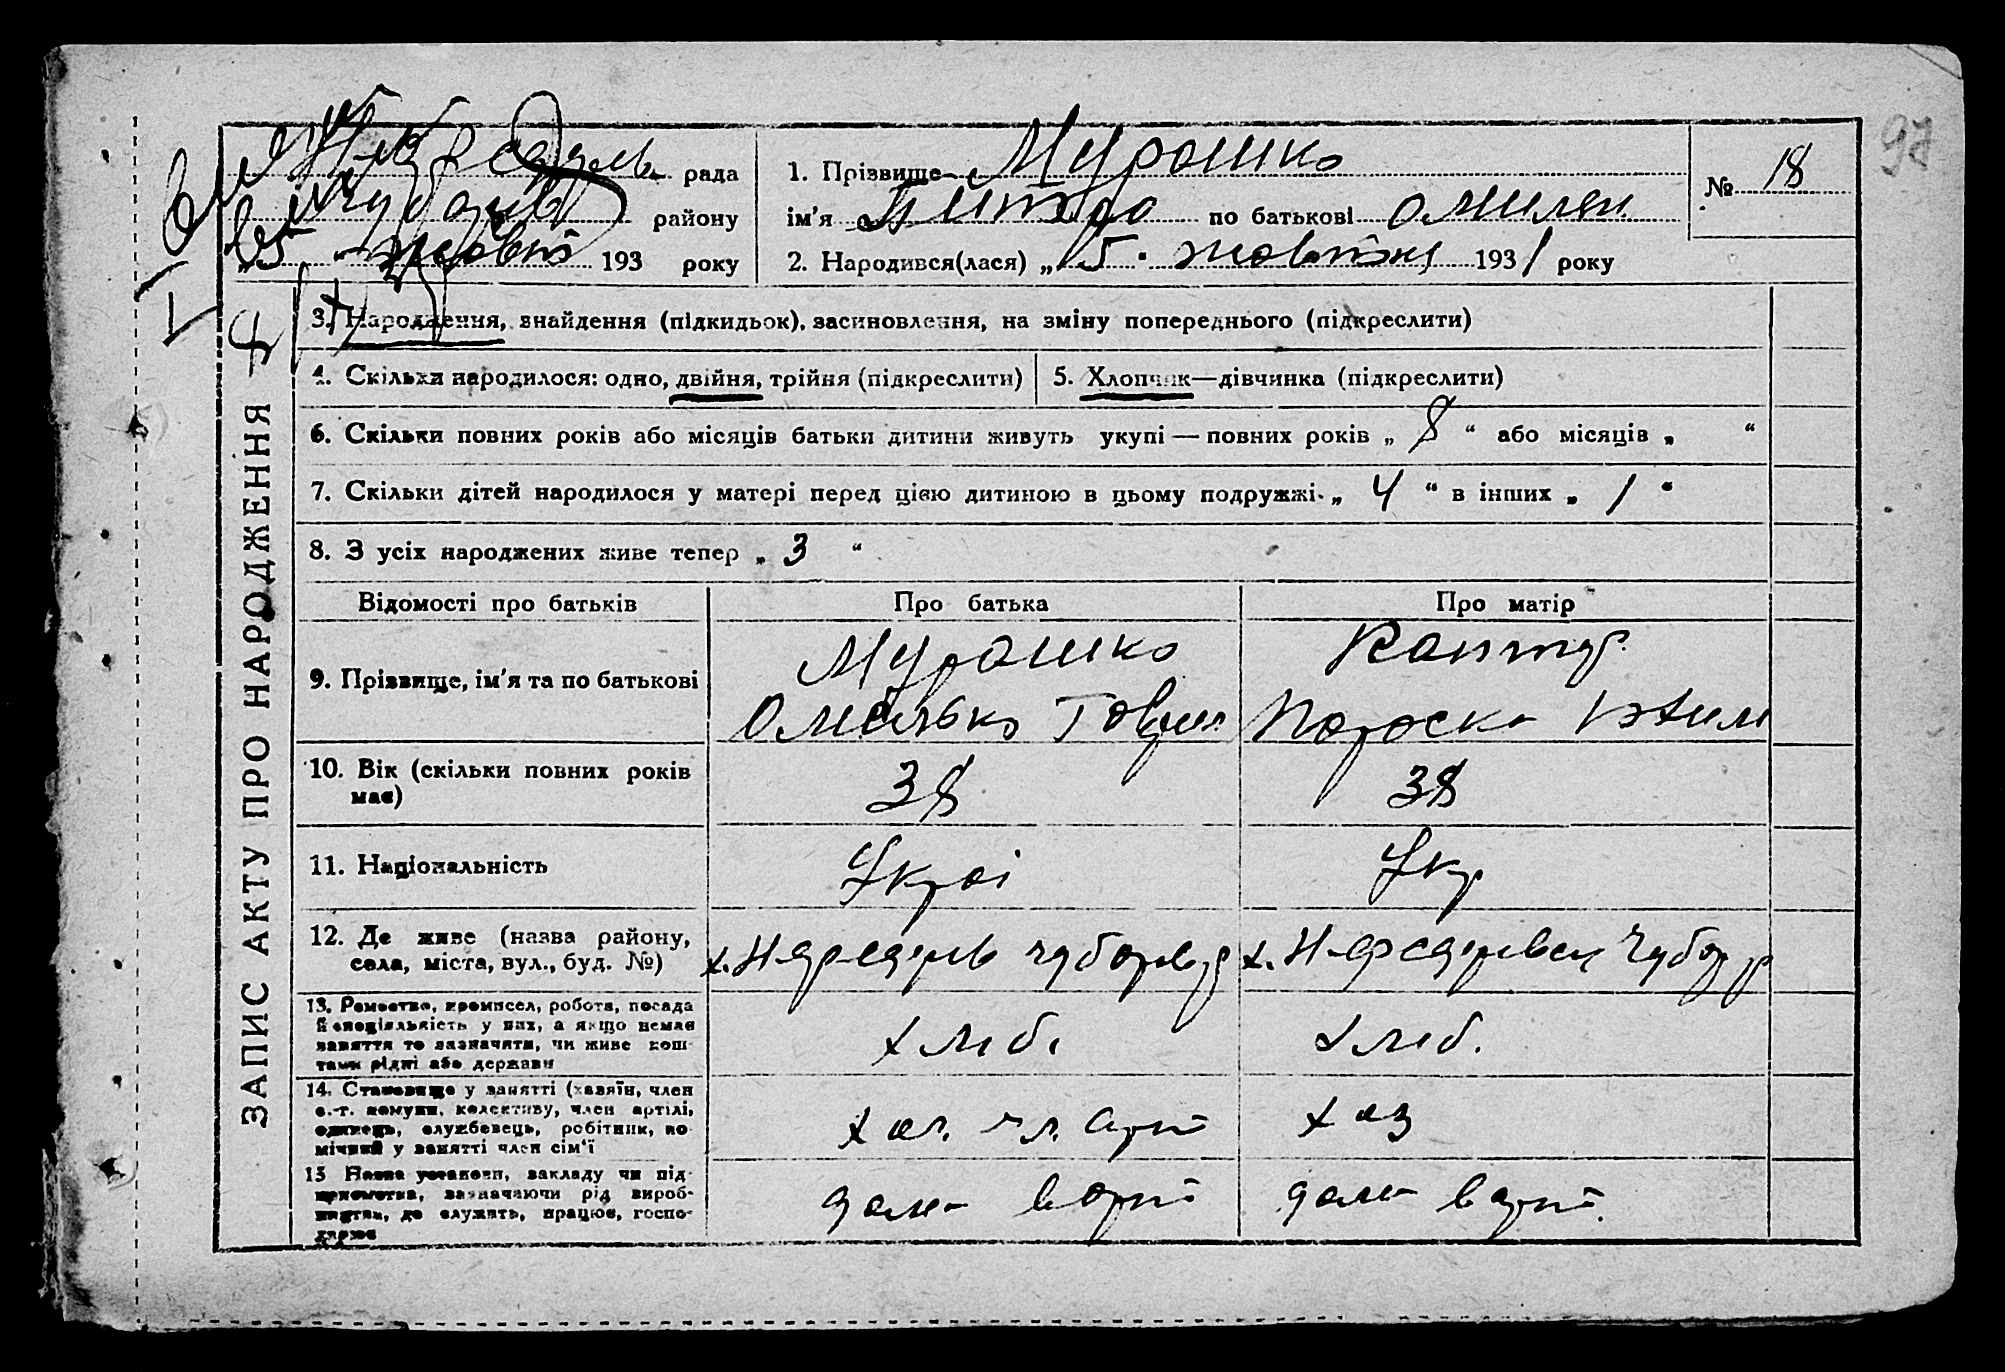 97
рада
району
5 жовт 193 року
1. Прізвище Мурашко
ім'я по батькові Омелян
№ 18
2. Народився(лася) „ 5 " жовтня 1931 року
ЗАПИС АКТУ ПРО НАРОДЖЕННЯ
3. Народження, знайдення (підкидьок), засиновлення, на зміну попереднього (підкреслити)
4. Скільки народилося: одно, двійня, трійня (підкреслити)
5. Хлопчик—дівчинка (підкреслити)
6. Скільки повних років або місяців батьки дитини живуть укупі — повних років „ 8 “ або місяців „ “
7. Скільки дітей народилося у матері перед цією дитиною в цьому подружжі „ 4 “ в інших „ 1 “
8. З усіх народжених живе тепер „ 3 “
Відомості про батьків
Про батька
Про матір
9. Прізвище, ім'я та по батькові
Мурашко
Омелько Гаврил
Каптур
Параска
10. Вік (скільки повних років
має)
38
38
11. Національність
Украі
Укр
12. Де живе (назва району,
села, міста, вул., буд. №)
13. Ремество, промисел, робота, посада
й спеціяльність у них, а якщо немає
заняття то зазначити, чи живе кош-
тами рідні або держави
хліб.
хліб.
14. Становище у занятті (хазяїн, член
с.-г. комуни, колективу, член артілі,
одинець, службовець, робітник, по-
мічний у занятті член сім'ї
хаз. чл. арт
хаз
15 Назва установи, закладу чи під-
приємства, зазначаючи рід вироб-
ництва, де служить, працює, госпо-
дарює